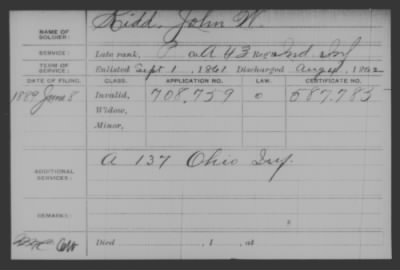 NAME OF SOLDIER: Kidd, John W.
SERVICE: Late rank, P Co. A 43 Reg't Ind Inf
TERM OF SERVICE: Enlisted Sept 1, 1861 Discharged Aug 4, 1862
DATE OF FILING. CLASS. APPLICATION NO. LAW. CERTIFICATE NO.
1889 June 8 Invalid, 708.759 o 587.785
Widow,
Minor,
ADDITIONAL SERVICES: A 137 Ohio Inf.
REMARKS:
Died , 1 , at